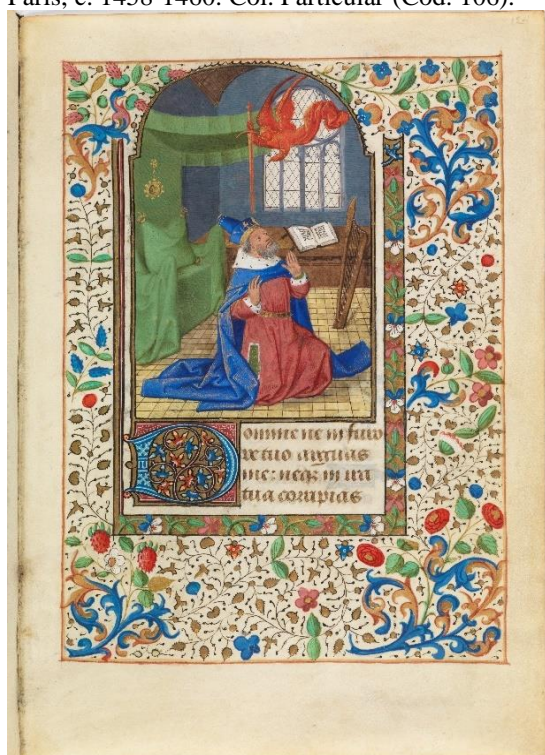 Paris, c. 1458-1460. Col. Particular (Cód. 106).
Domine ne in furo
re tuo arguas
me: neq; in ira
tua corripias